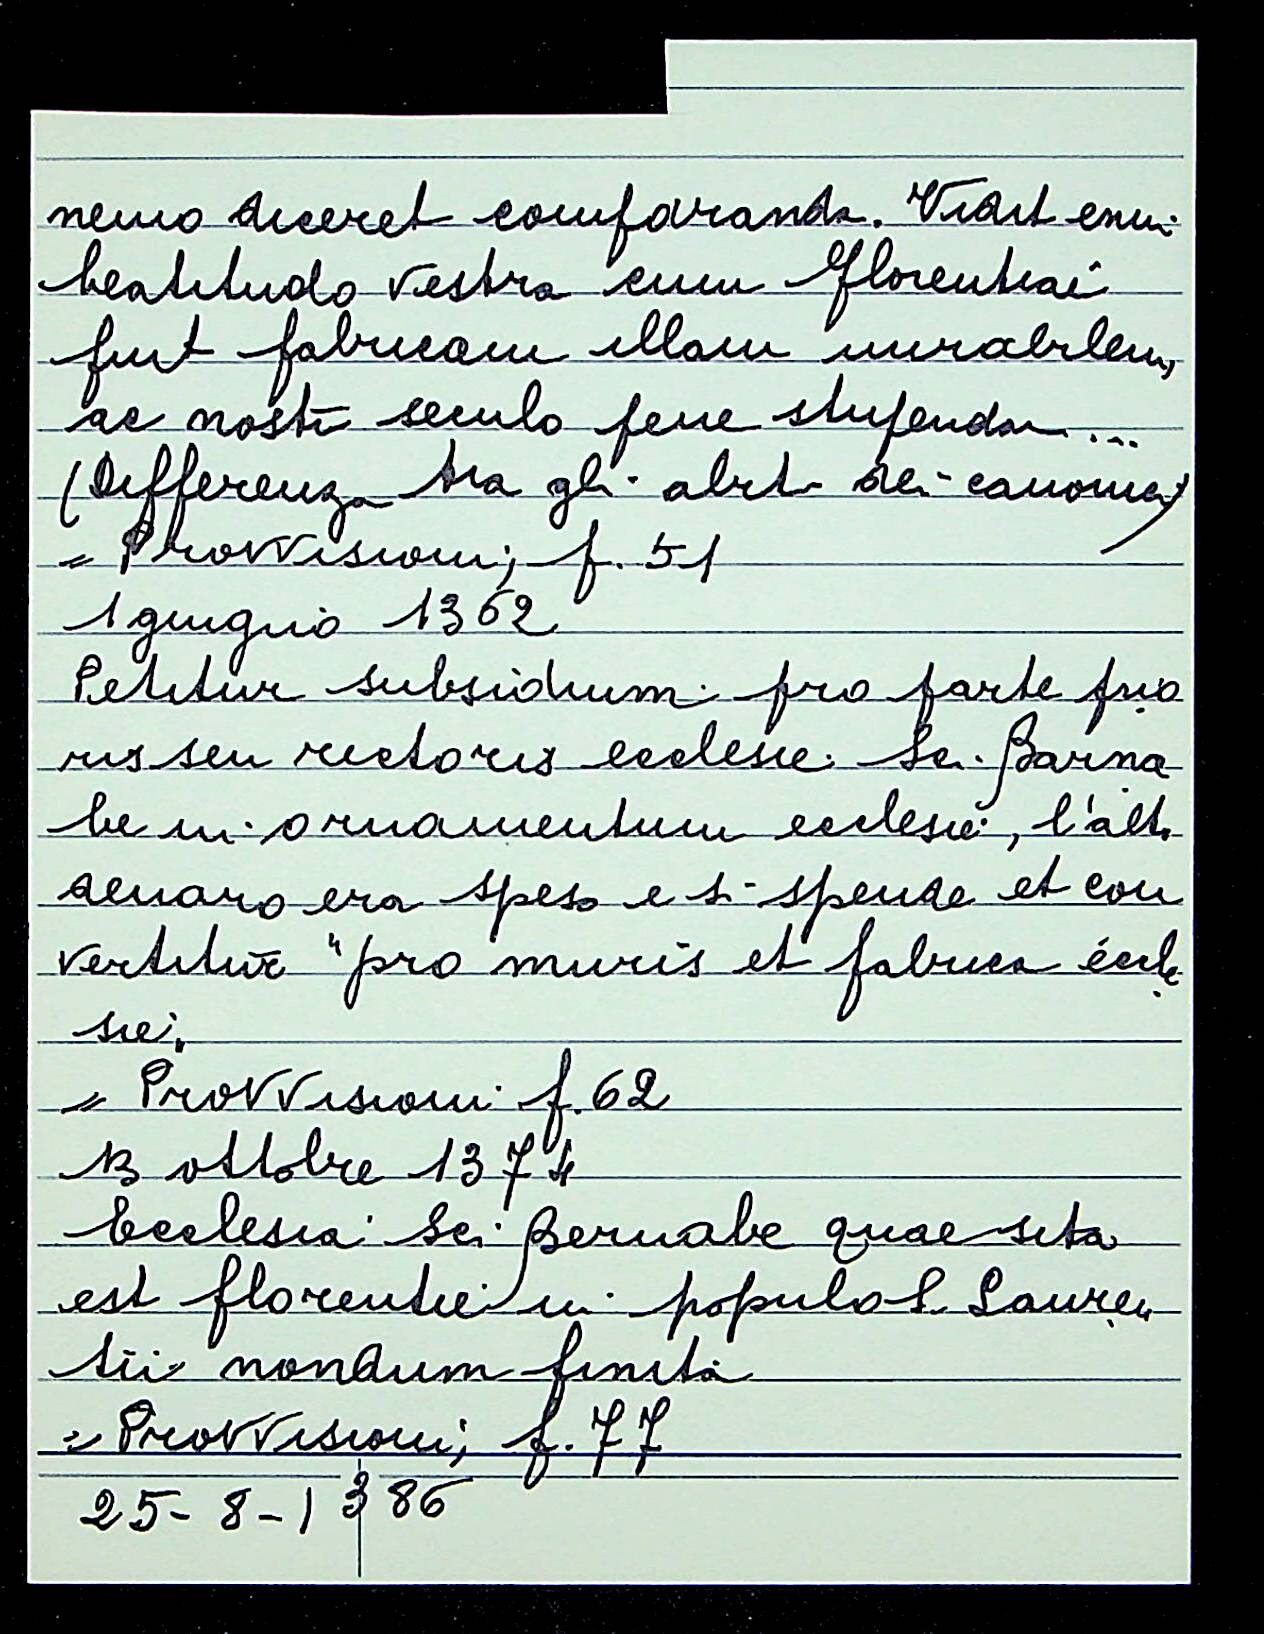 nemo diceret comparanda. Vidit enim
beatitudo vestra cum Florentiai
fuit fabricam illam mirabilem,
ac nostr̄ seculo fere stupendam...
(Differenza tra gli abiti dei canonici)
= Provvisioni; f. 51
1 giugno 1362
Petitur subsidium pro parte prio
ris seu rectoris ecclesie Sci. Barna
be in ornamentum ecclesie, l'alt.
denaro era speso e si spende et con
vertitur̄ "pro muris et fabrica eccle
siei„
= Provvisioni f. 62
13 ottobre 1374
Ecclesia Sci Bernabe quae sita
est florentiei in populo S. Lauren
tii nondum finita
= Provvisioni; f. 77
25-8-1386